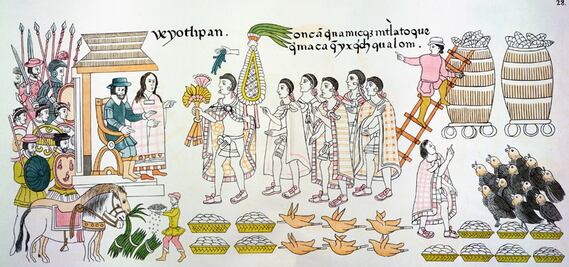 28.
veyotlipan.
oncã q̃namicq̃ ĩtlatoque
q̃macaq̃ yxq̃ch qualoni.